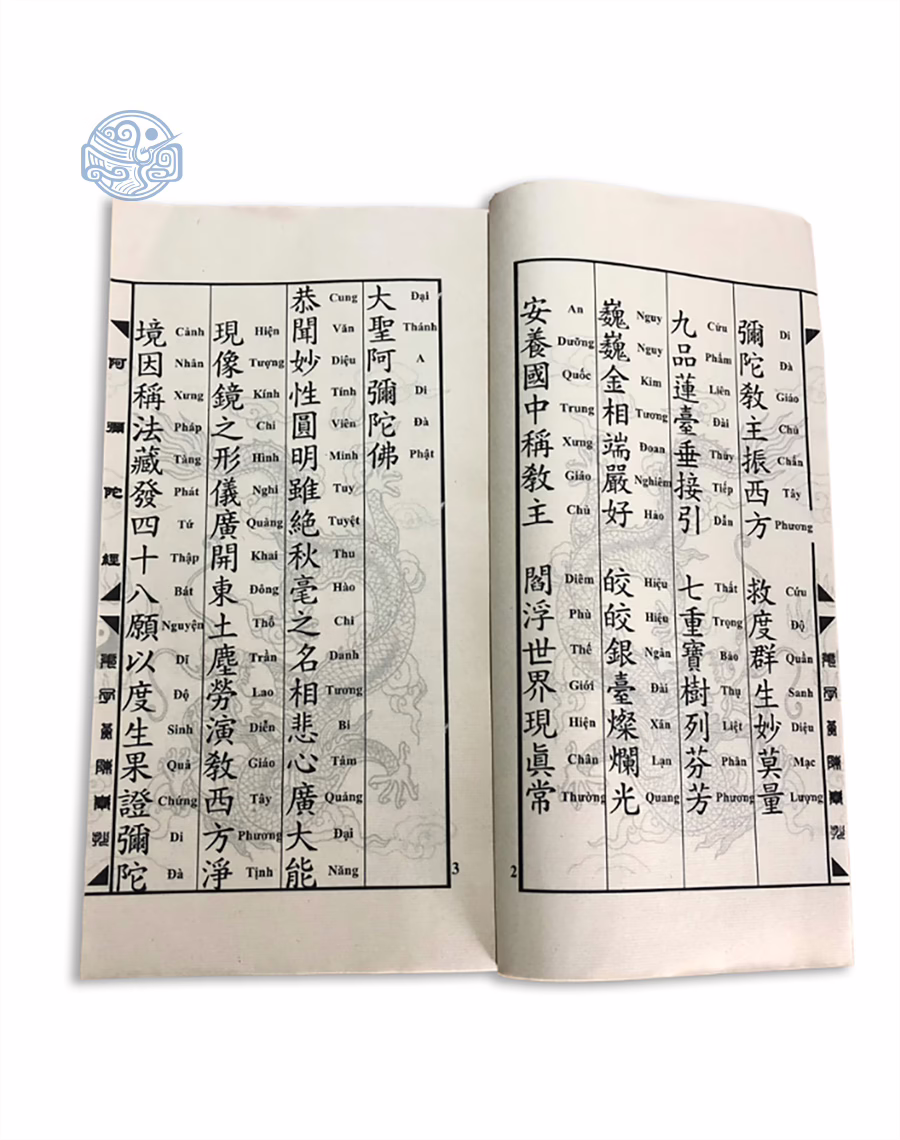 彌陀教主振西方 救度群生妙莫量
Di Đà Giáo Chủ Chấn Tây Phương Cứu Độ Quần Sanh Diệu Mạc Lượng
九品蓮臺垂接引 七重寶樹列芬芳
Cửu Phẩm Liên Đài Thùy Tiếp Dẫn Thất Trọng Bảo Thụ Liệt Phân Phương
巍巍金相端嚴好 皎皎銀臺燦爛光
Nguy Nguy Kim Tương Đoan Nghiêm Hảo Hiệu Hiệu Ngân Đài Xán Lạn Quang
安養國中稱教主 閻浮世界現眞常
An Dưỡng Quốc Trung Xưng Giáo Chủ Diêm Phù Thế Giới Hiện Chân Thường
2
大聖阿彌陀佛
Đại Thánh A Di Đà Phật
恭聞妙性圓明雖絶秋毫之名相悲心廣大能
Cung Văn Diệu Tính Viên Minh Tuy Tuyệt Thu Hào Chi Danh Tương Bi Tâm Quảng Đại Năng
現像鏡之形儀廣開東土塵勞演教西方淨
Hiện Tượng Kính Chi Hình Nghi Quảng Khai Đông Thổ Trần Lao Diễn Giáo Tây Phương Tịnh
境因稱法藏發四十八願以度生果證彌陀
Cảnh Nhân Xưng Pháp Tàng Phát Tứ Thập Bát Nguyện Dĩ Độ Sinh Quả Chứng Di Đà
3
阿彌陀經